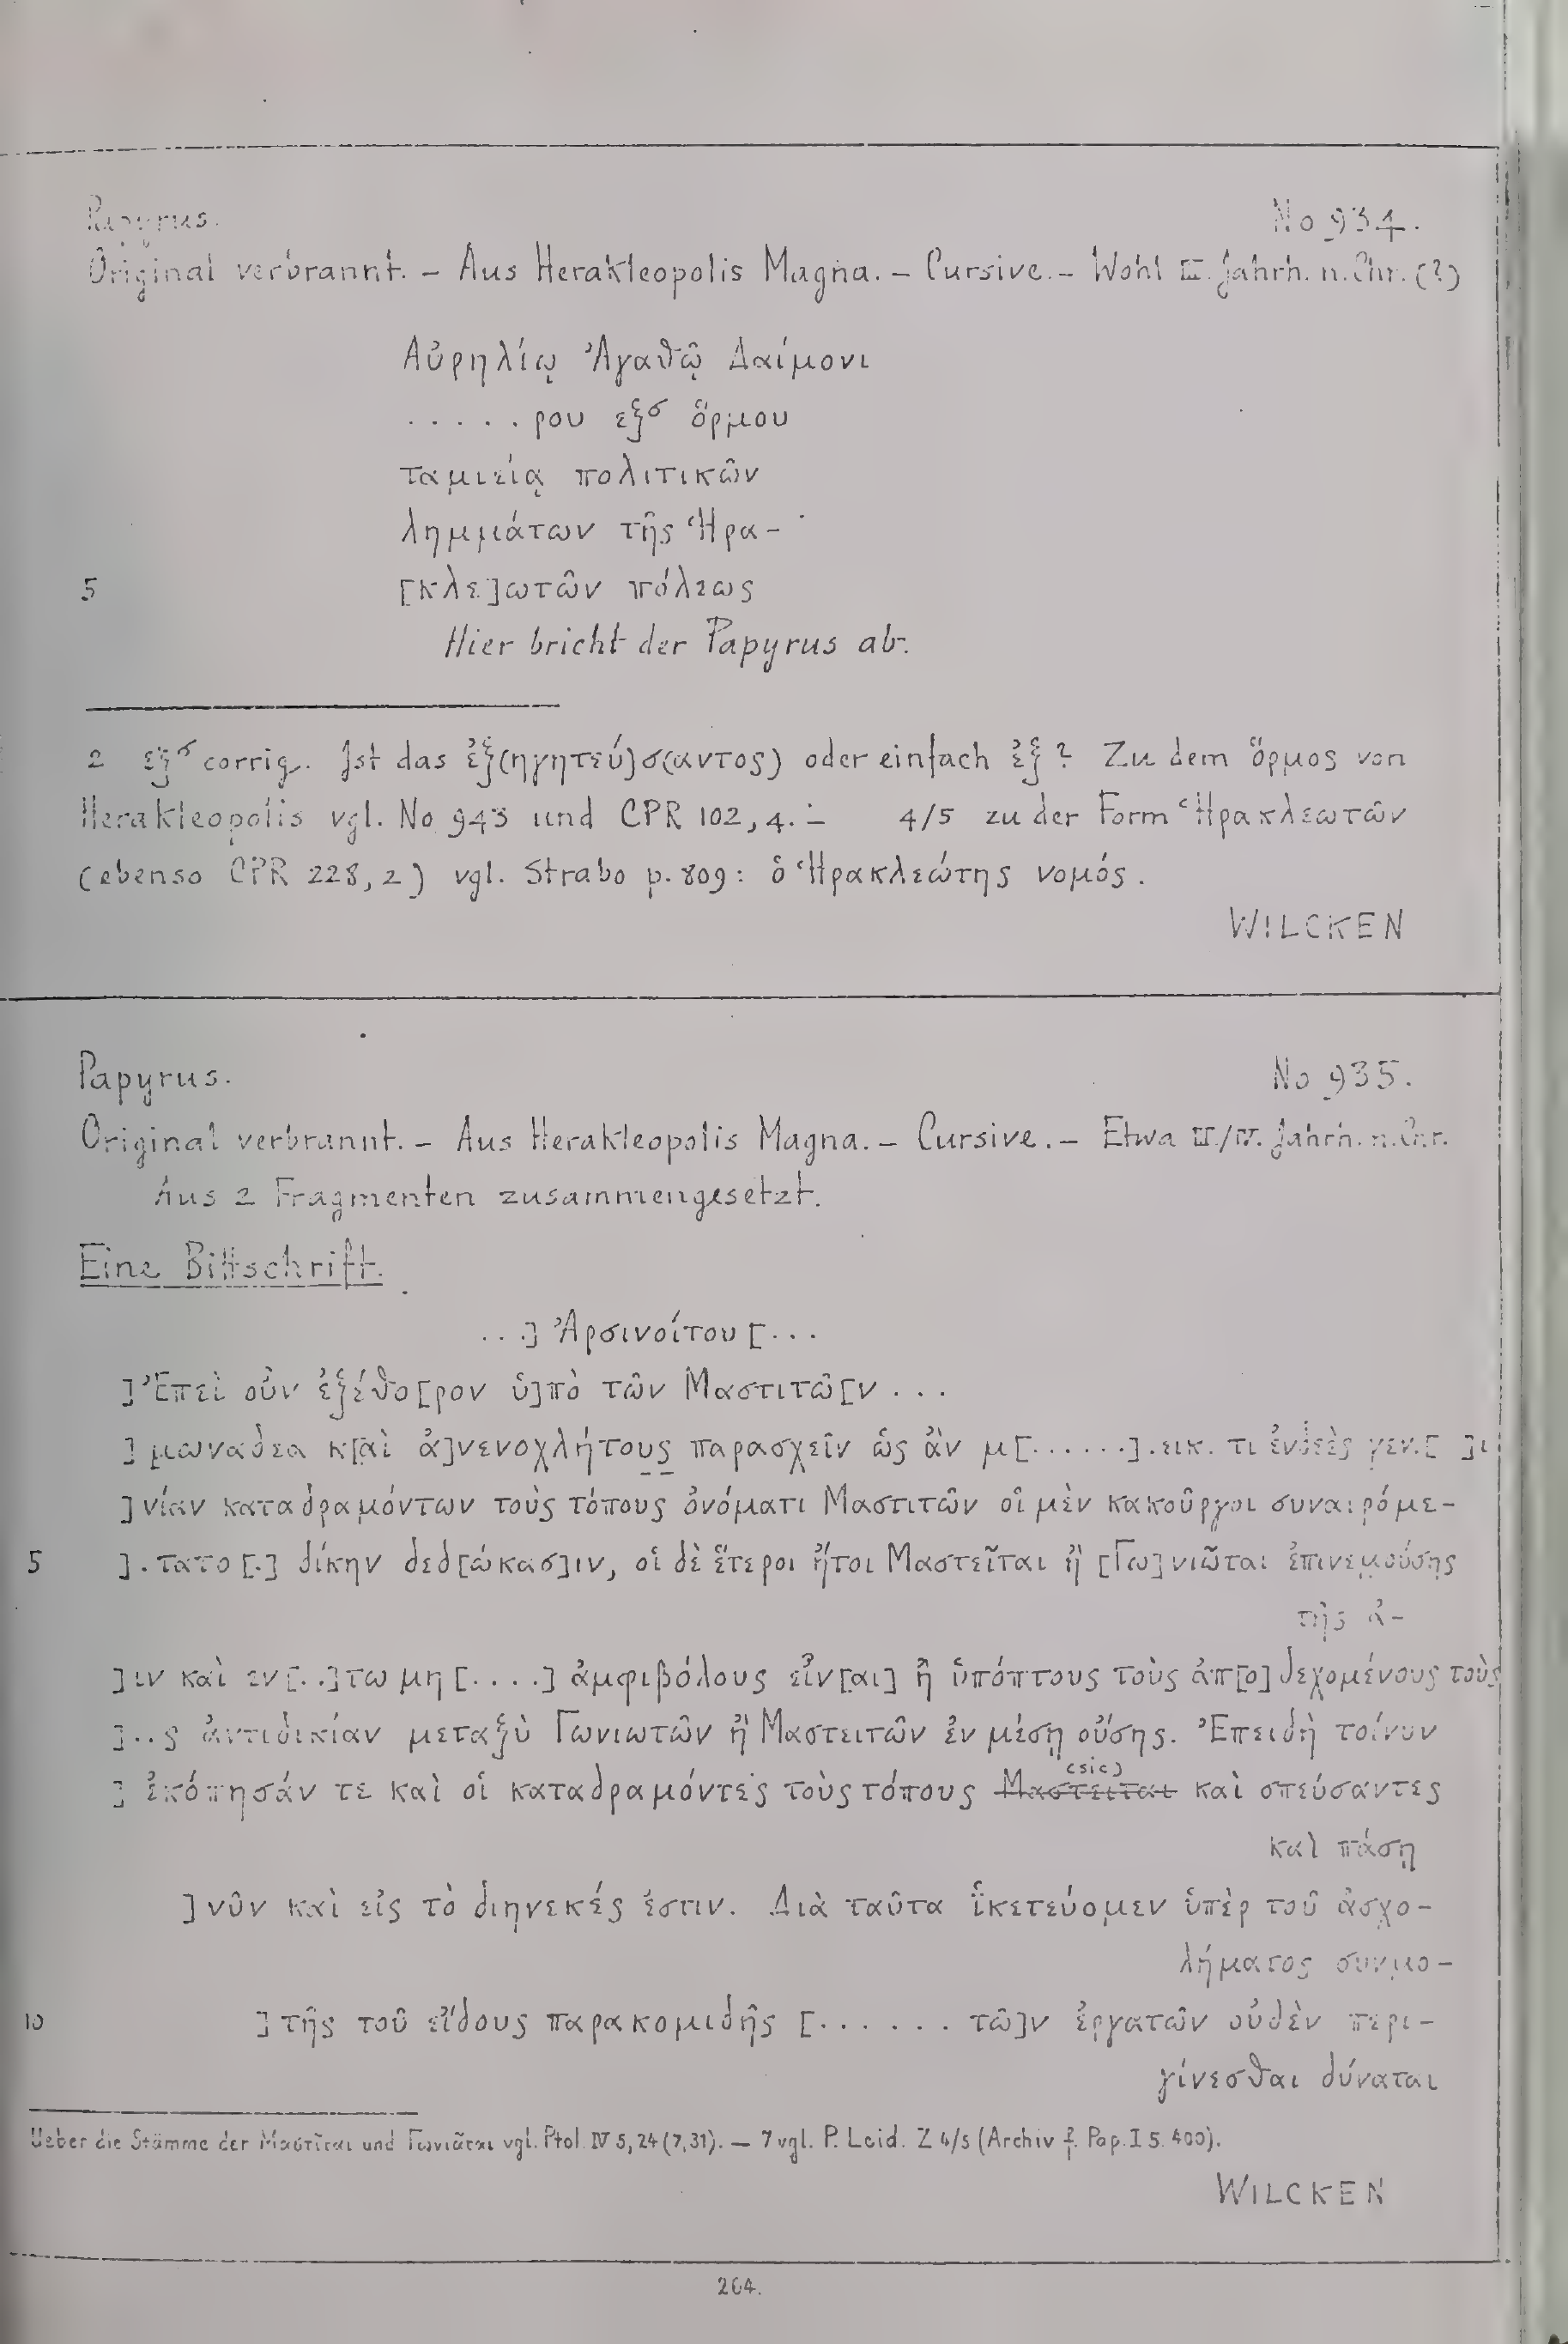 Papyrus.
No 934.
Original verbrannt. – Aus Herakleopolis Magna. – Cursive. – Wohl III. Jahrh. n. Chr. (?)
Αὐρηλίῳ Ἀγαθῷ Δαίμονι
. . . . . ρου εξσ ὅρμου
ταμιείᾳ πολιτικῶν
λημμάτων τῆς Ἡρα-
5 [κλε]ωτῶν πόλεως
Hier bricht der Papyrus ab.
2 εξσ corrig. Ist das ἐξ(ηγητεύ)σ(αντος) oder einfach ἐξ? Zu dem ὅρμος von
Herakleopolis vgl. No 943 und CPR 102, 4. – 4/5 zu der Form Ἡρακλεωτῶν
(ebenso CPR 228, 2) vgl. Strabo p. 809: ὁ Ἡρακλεώτης νομός.
WILCKEN
Papyrus.
No 935.
Original verbrannt. – Aus Herakleopolis Magna. – Cursive. – Etwa III./IV. Jahrh. n. Chr.
Aus 2 Fragmenten zusammengesetzt.
Eine Bittschrift.
. . .] Ἀρσινοίτου [. . .
] Ἐπεὶ οὖν ἐξέθο[ρον ὑ]πὸ τῶν Μαστιτῶ[ν . . .
] μωναδεα κ[αὶ ἀ]νενοχλήτους παρασχεῖν ὡς ἂν μ[. . . . . .] . εικ. τι ἐνδεὲς γεν.[ ]ι
]νίαν καταδραμόντων τοὺς τόπους ὀνόματι Μαστιτῶν οἱ μὲν κακοῦργοι συναιρόμε-
5 ] . τατο[.] δίκην δεδ[ώκασ]ιν, οἱ δὲ ἕτεροι ἤτοι Μαστεῖται ἢ [Γω]νιῶται ἐπινεμούσης
τῆς ἀ-
]ιν καὶ εν[. .]τω μη [. . . .] ἀμφιβόλους εἶν[αι] ἢ ὑπόπτους τοὺς ἀπ[ο]δεχομένους τοὺς
] . . ς ἀντιδικίαν μεταξὺ Γωνιωτῶν ἢ Μαστειτῶν ἐν μέσῃ οὔσης. Ἐπειδὴ τοίνυν
] ἐκόπησάν τε καὶ οἱ καταδραμόντες τοὺς τόπους Μαστειται (sic) καὶ σπεύσαντες
καὶ πάσῃ
] νῦν καὶ εἰς τὸ διηνεκές ἐστιν. Διὰ ταῦτα ἱκετεύομεν ὑπὲρ τοῦ ἀσχο-
λήματος συνμο-
10 ] τῆς τοῦ εἴδους παρακομιδῆς [. . . . . . τῶ]ν ἐργατῶν οὐδὲν περι-
γίνεσθαι δύναται
Ueber die Stämme der Μαστῖται und Γωνιᾶται vgl. Ptol. IV 5, 24 (7, 31). – 7 vgl. P. Leid. Z 4/5 (Archiv f. Pap. I S. 400).
WILCKEN
264.